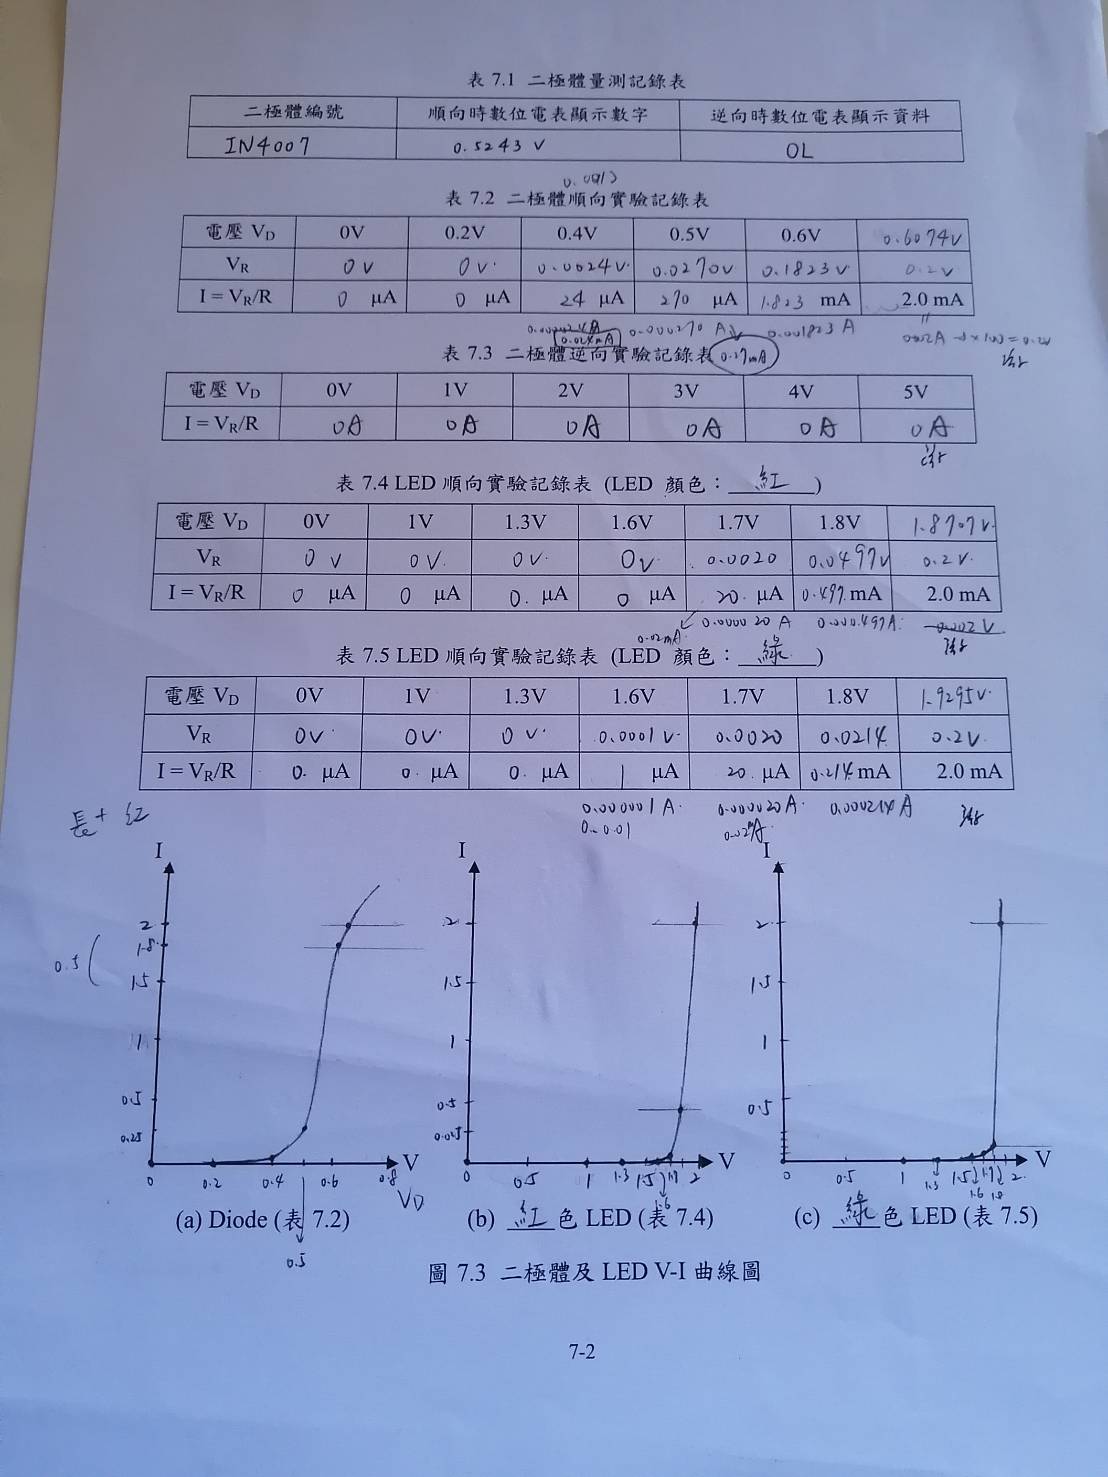 表 7.1 二極體量測記錄表
二極體編號 順向時數位電表顯示數字 逆向時數位電表顯示資料
IN4007 0.5243 V OL
表 7.2 二極體順向實驗記錄表
電壓 VD 0V 0.2V 0.4V 0.5V 0.6V 0.6074V
VR 0V 0V. 0.0024V. 0.0270V 0.1823V 0.2V
I = VR/R 0 μA 0 μA 24 μA 270 μA 1.823 mA 2.0 mA
0.000024A 0.000270 A 0.001823 A
0.024mA
表 7.3 二極體逆向實驗記錄表 0.27mA
電壓 VD 0V 1V 2V 3V 4V 5V
I = VR/R 0A 0A 0A 0A 0A 0A
表 7.4 LED 順向實驗記錄表 (LED 顏色：紅)
電壓 VD 0V 1V 1.3V 1.6V 1.7V 1.8V 1.8707V.
VR 0 V 0V. 0V. 0V. 0.0020 0.0497V 0.2V.
I = VR/R 0 μA 0 μA 0. μA 0 μA 20. μA 0.497 mA 2.0 mA
0.000020 A 0.000497A. 0.002V
0.02mA
表 7.5 LED 順向實驗記錄表 (LED 顏色：綠)
電壓 VD 0V 1V 1.3V 1.6V 1.7V 1.8V 1.9295V.
VR 0V. 0V. 0V. 0.0001V. 0.0020 0.0214 0.2V.
I = VR/R 0. μA 0. μA 0. μA 1 μA 20. μA 0.214 mA 2.0 mA
0.000001A. 0.000020A. 0.000214A
0.001 0.02mA
長+ 紅
I I I
2 2 2
1.8
0.5
1.5 1.5 1.5
1 1 1
0.5 0.5 0.5
0.25
V V V
0 0.2 0.4 0.6 0.8 0 0.5 1 1.3 1.5 1.7 2 0 0.5 1 1.3 1.5 1.7 2
VD 1.6 1.6 1.8
(a) Diode (表 7.2) (b) 紅色 LED (表 7.4) (c) 綠色 LED (表 7.5)
0.5
圖 7.3 二極體及 LED V-I 曲線圖
7-2